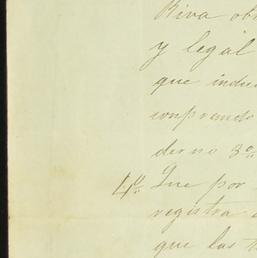 Riva ob
y legal
que indu
comprando
derno 3º
4º Que por
registra
que las t